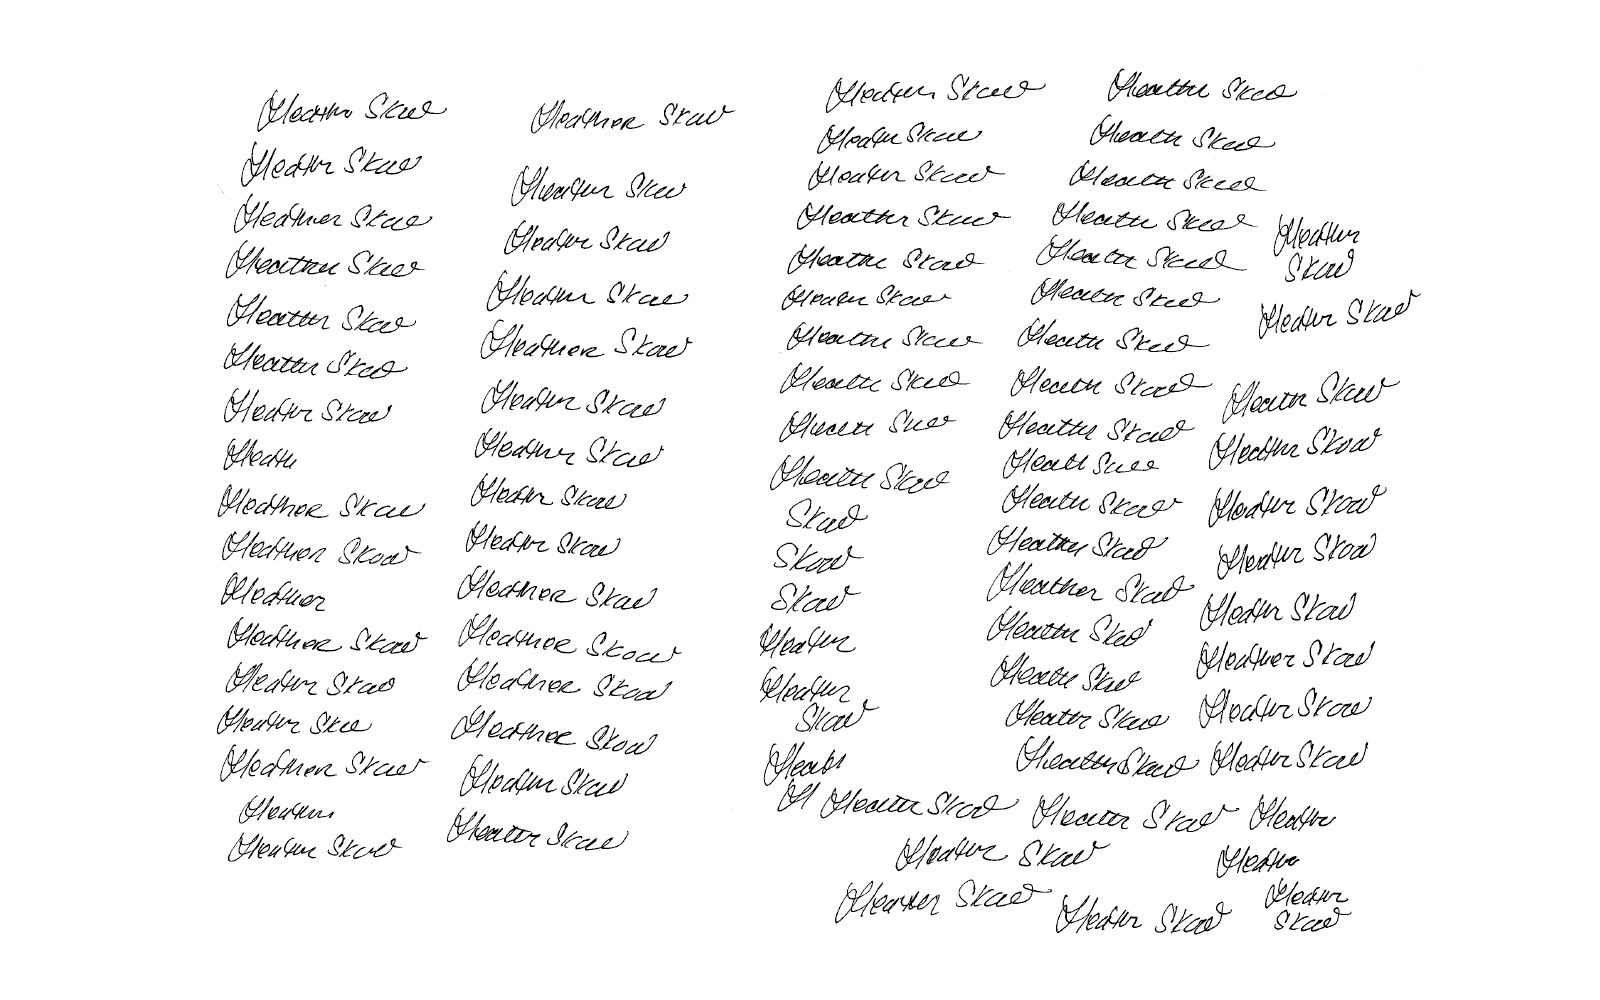 Heather Skow
Heather Skow
Heather Skow
Heather Skow
Heather Skow
Heather Skow
Heather Skow
Heather
Heather Skow
Heather Skow
Heather
Heather Skow
Heather Skow
Heather Skow
Heather Skow
Heather
Heather Skow
Heather Skow
Heather Skow
Heather Skow
Heather Skow
Heather Skow
Heather Skow
Heather Skow
Heather Skow
Heather Skow
Heather Skow
Heather Skow
Heather Skow
Heather Skow
Heather Skow
Heather Skow
Heather Skow
Heather Skow
Heather Skow
Heather Skow
Heather Skow
Heather Skow
Heather Skow
Heather Skow
Heather Skow
Heather Skow
Skow
Skow
Skow
Heather
Heather
Skow
Heather
H Heather Skow
Heather Skow
Heather Skow
Heather Skow
Heather Skow
Heather Skow
Heather Skow
Heather Skow
Heather Skow
Heather Skow
Heather Skow
Heather Skow
Heather Skow
Heather Skow
Heather Skow
Heather Skow
Heather Skow
Heather Skow
Heather Skow
Heather Skow
Heather Skow
Heather Skow
Heather
Skow
Heather Skow
Heather Skow
Heather Skow
Heather Skow
Heather Skow
Heather Skow
Heather Skow
Heather Skow
Heather Skow
Heather
Heather
Heather
Skow
Heather Skow